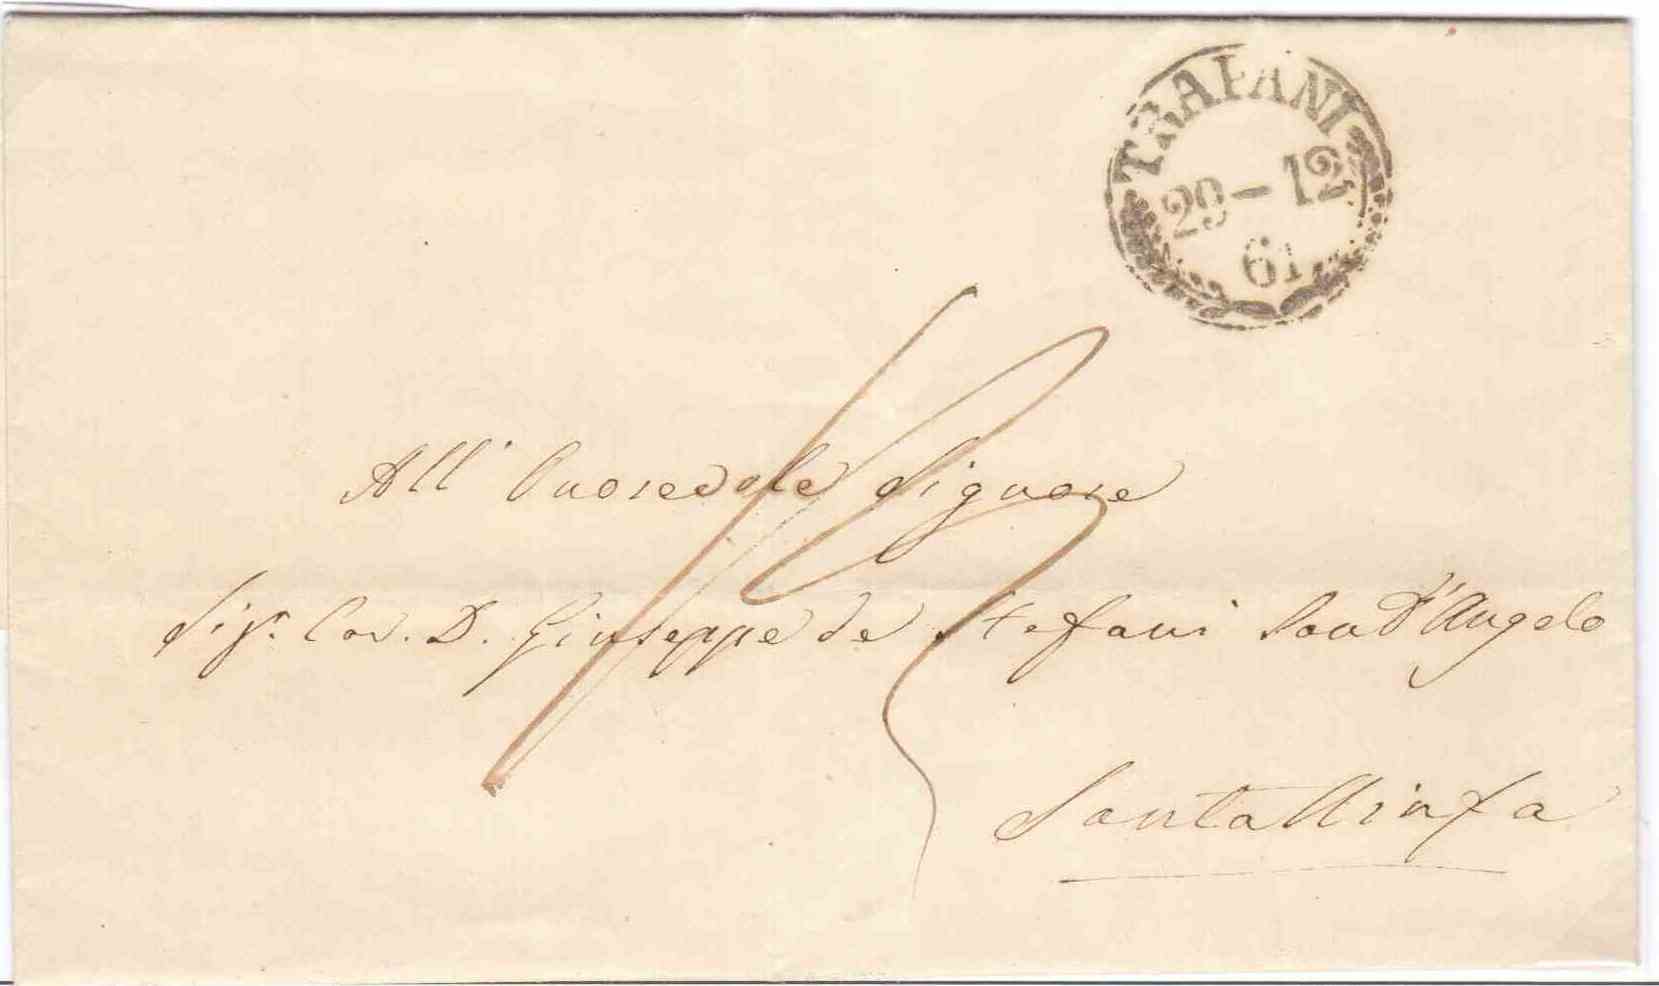 TRAPANI
29-12
61
All' Onorevole Signore
Sigr. Cav. D. Giuseppe de Stefani San D'Angelo
Santa Ninfa